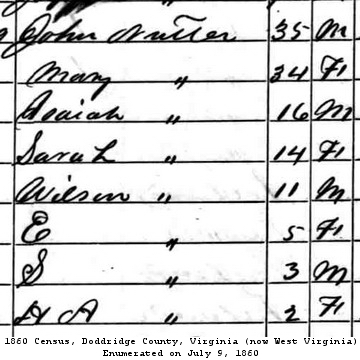 John Nutter 35 M
Mary " 34 F
Isaiah " 16 M
Sarah " 14 F
Wilson " 11 M
E " 5 F
S " 3 M
H A " 2 F
1860 Census, Doddridge County, Virginia (now West Virginia)
Enumerated on July 9, 1860